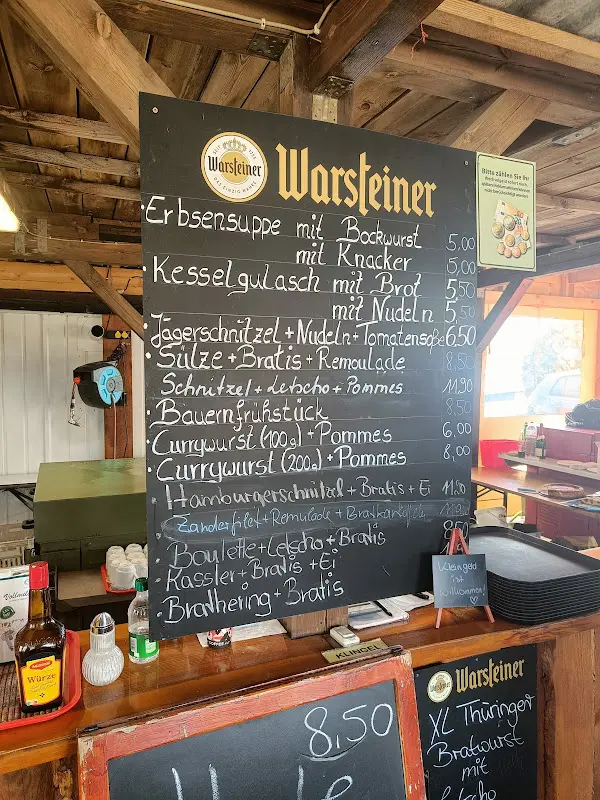 SEIT 1753
Warsteiner
DAS EINZIG WAHRE
Warsteiner
Erbsensuppe mit Bockwurst 5,00
mit Knacker 5,00
Kesselgulasch mit Brot 5,50
mit Nudeln 5,50
Jägerschnitzel + Nudeln + Tomatensoße 6,50
Sülze + Bratis + Remoulade 8,50
Schnitzel + Letscho + Pommes 11,90
Bauernfrühstück 8,50
Currywurst (100g) + Pommes 6,00
Currywurst (200g) + Pommes 8,00
Hamburgerschnitzel + Bratis + Ei 11,90
Zanderfilet + Remulade + Bratkartoffeln
Boulette + Letscho + Bratis 8,50
Kassler + Bratis + Ei
Brathering + Bratis
Bitte zählen Sie Ihr
Kleingeld
ist
Willkommen!
MAGGI
Würze
Vollmil
KLINGEL
8,50
Warsteiner
XL Thüringer
Bratwurst
mit
Letscho